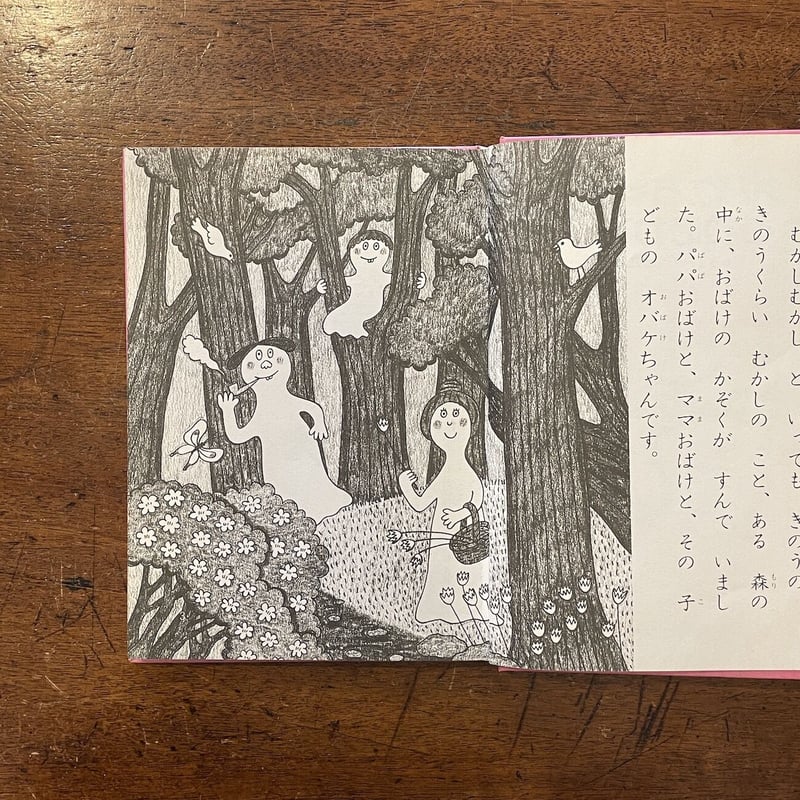 むかしむかし と いっても きのうの
きのうくらい むかしの こと、ある 森の
中に、おばけの かぞくが すんで いまし
た。パパおばけと、ママおばけと、その 子
どもの オバケちゃんです。